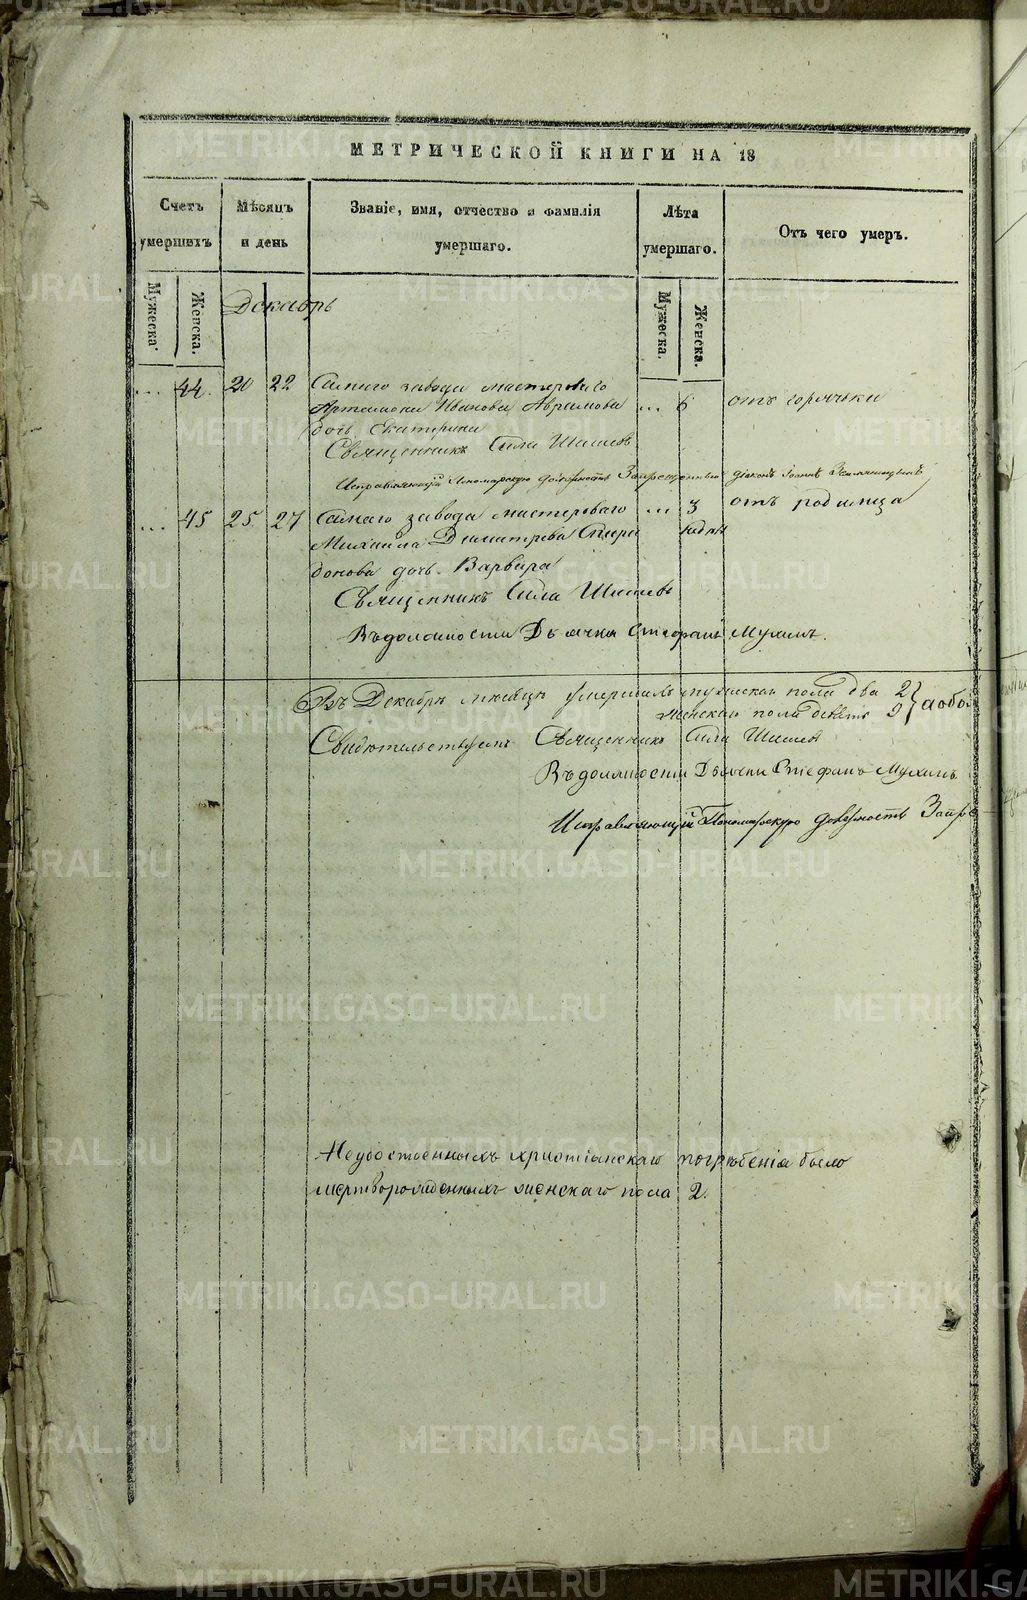 МЕТРИЧЕСКОЙ КНИГИ НА 18
Счетъ умершихъ
Мѣсяцъ и день
Званіе, имя, отчество и фамилія умершаго.
Лѣта умершаго.
Отъ чего умеръ.
Мужеска.
Женска.
Мужеска.
Женска.
Декабрь
... 44. 20 22 Самаго завода мастероваго ... 6 отъ горячки
Артамона Иванова Аврамова
дочь Екатерина
Священникъ Сила Шишевъ
Исправляющій Пономарскую должность Запрещенный діаконъ Іоаннъ
... 45 25 27 Самаго завода мастероваго ... 3 отъ родимца
Михаила Димитрева Спири недѣл
донова дочь Варвара
Священникъ Сила Шишевъ
Въ должности Дьячка Стефанъ Мухинъ.
Въ Декабрѣ мѣсяцѣ умершихъ мужеска пола два 2
женска пола девять 9 } а обо
Свидѣтельствуемъ Священникъ Сила Шишевъ
Въ должности Дьячка Стефанъ Мухинъ
Исправляющій Пономарскую должность Запре
Неудостоенныхъ христіанскаго погребенія было
мертворожденныхъ женскаго пола 2.
METRIKI.GASO-URAL.RU